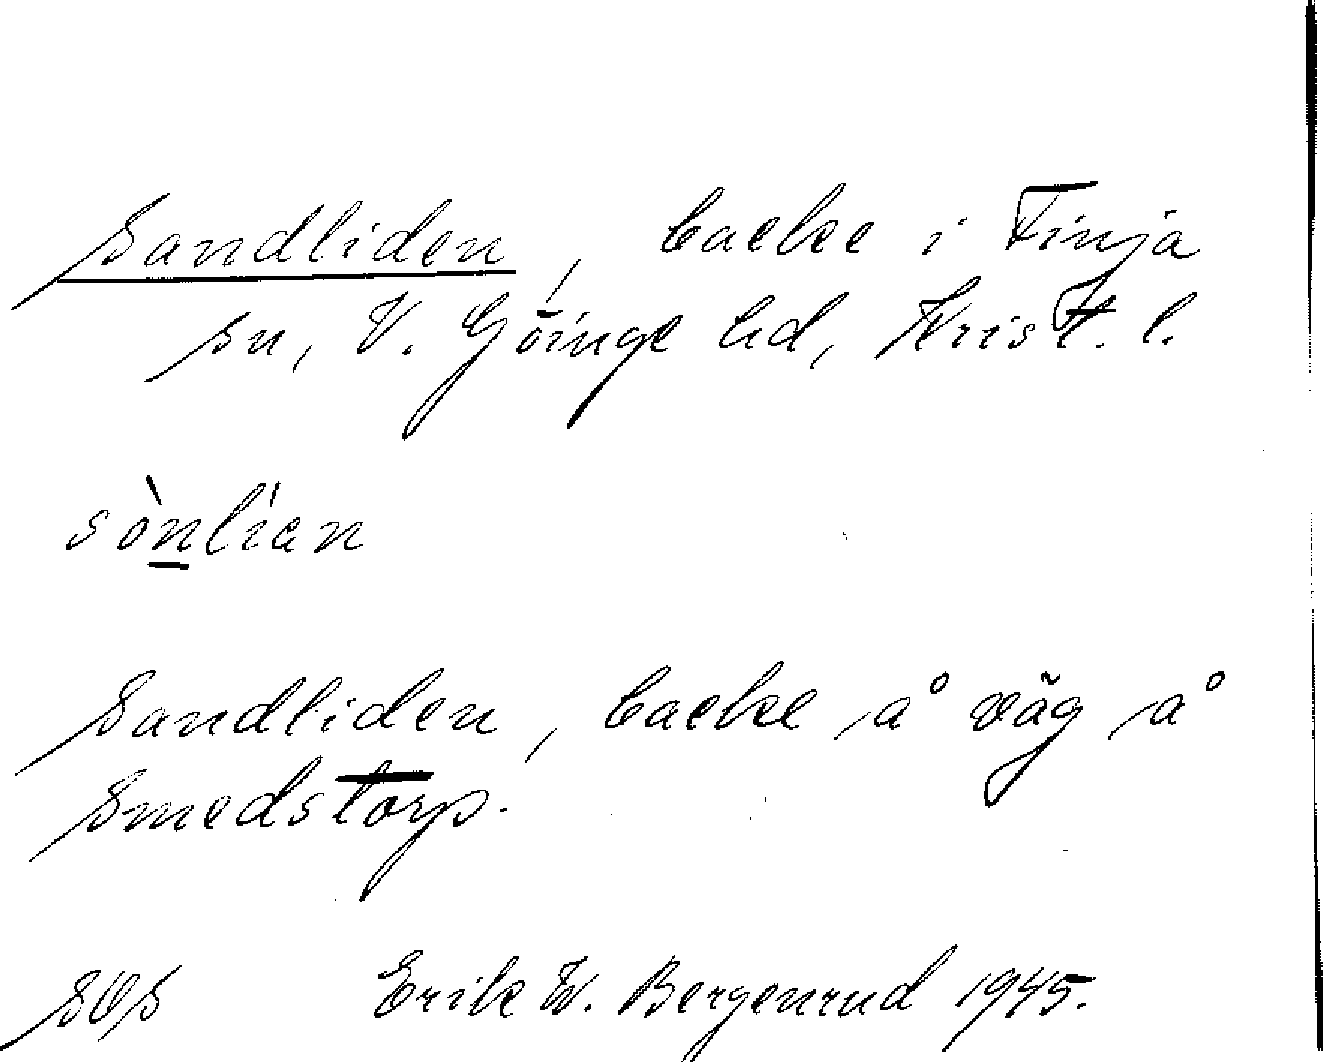 Sandliden, backe i Finja
sn, V. Göinge hd, Krist. l.
sònlían
Sandliden, backe å väg å
Smedstorp.
SOS Erik W. Bergenrud 1945.